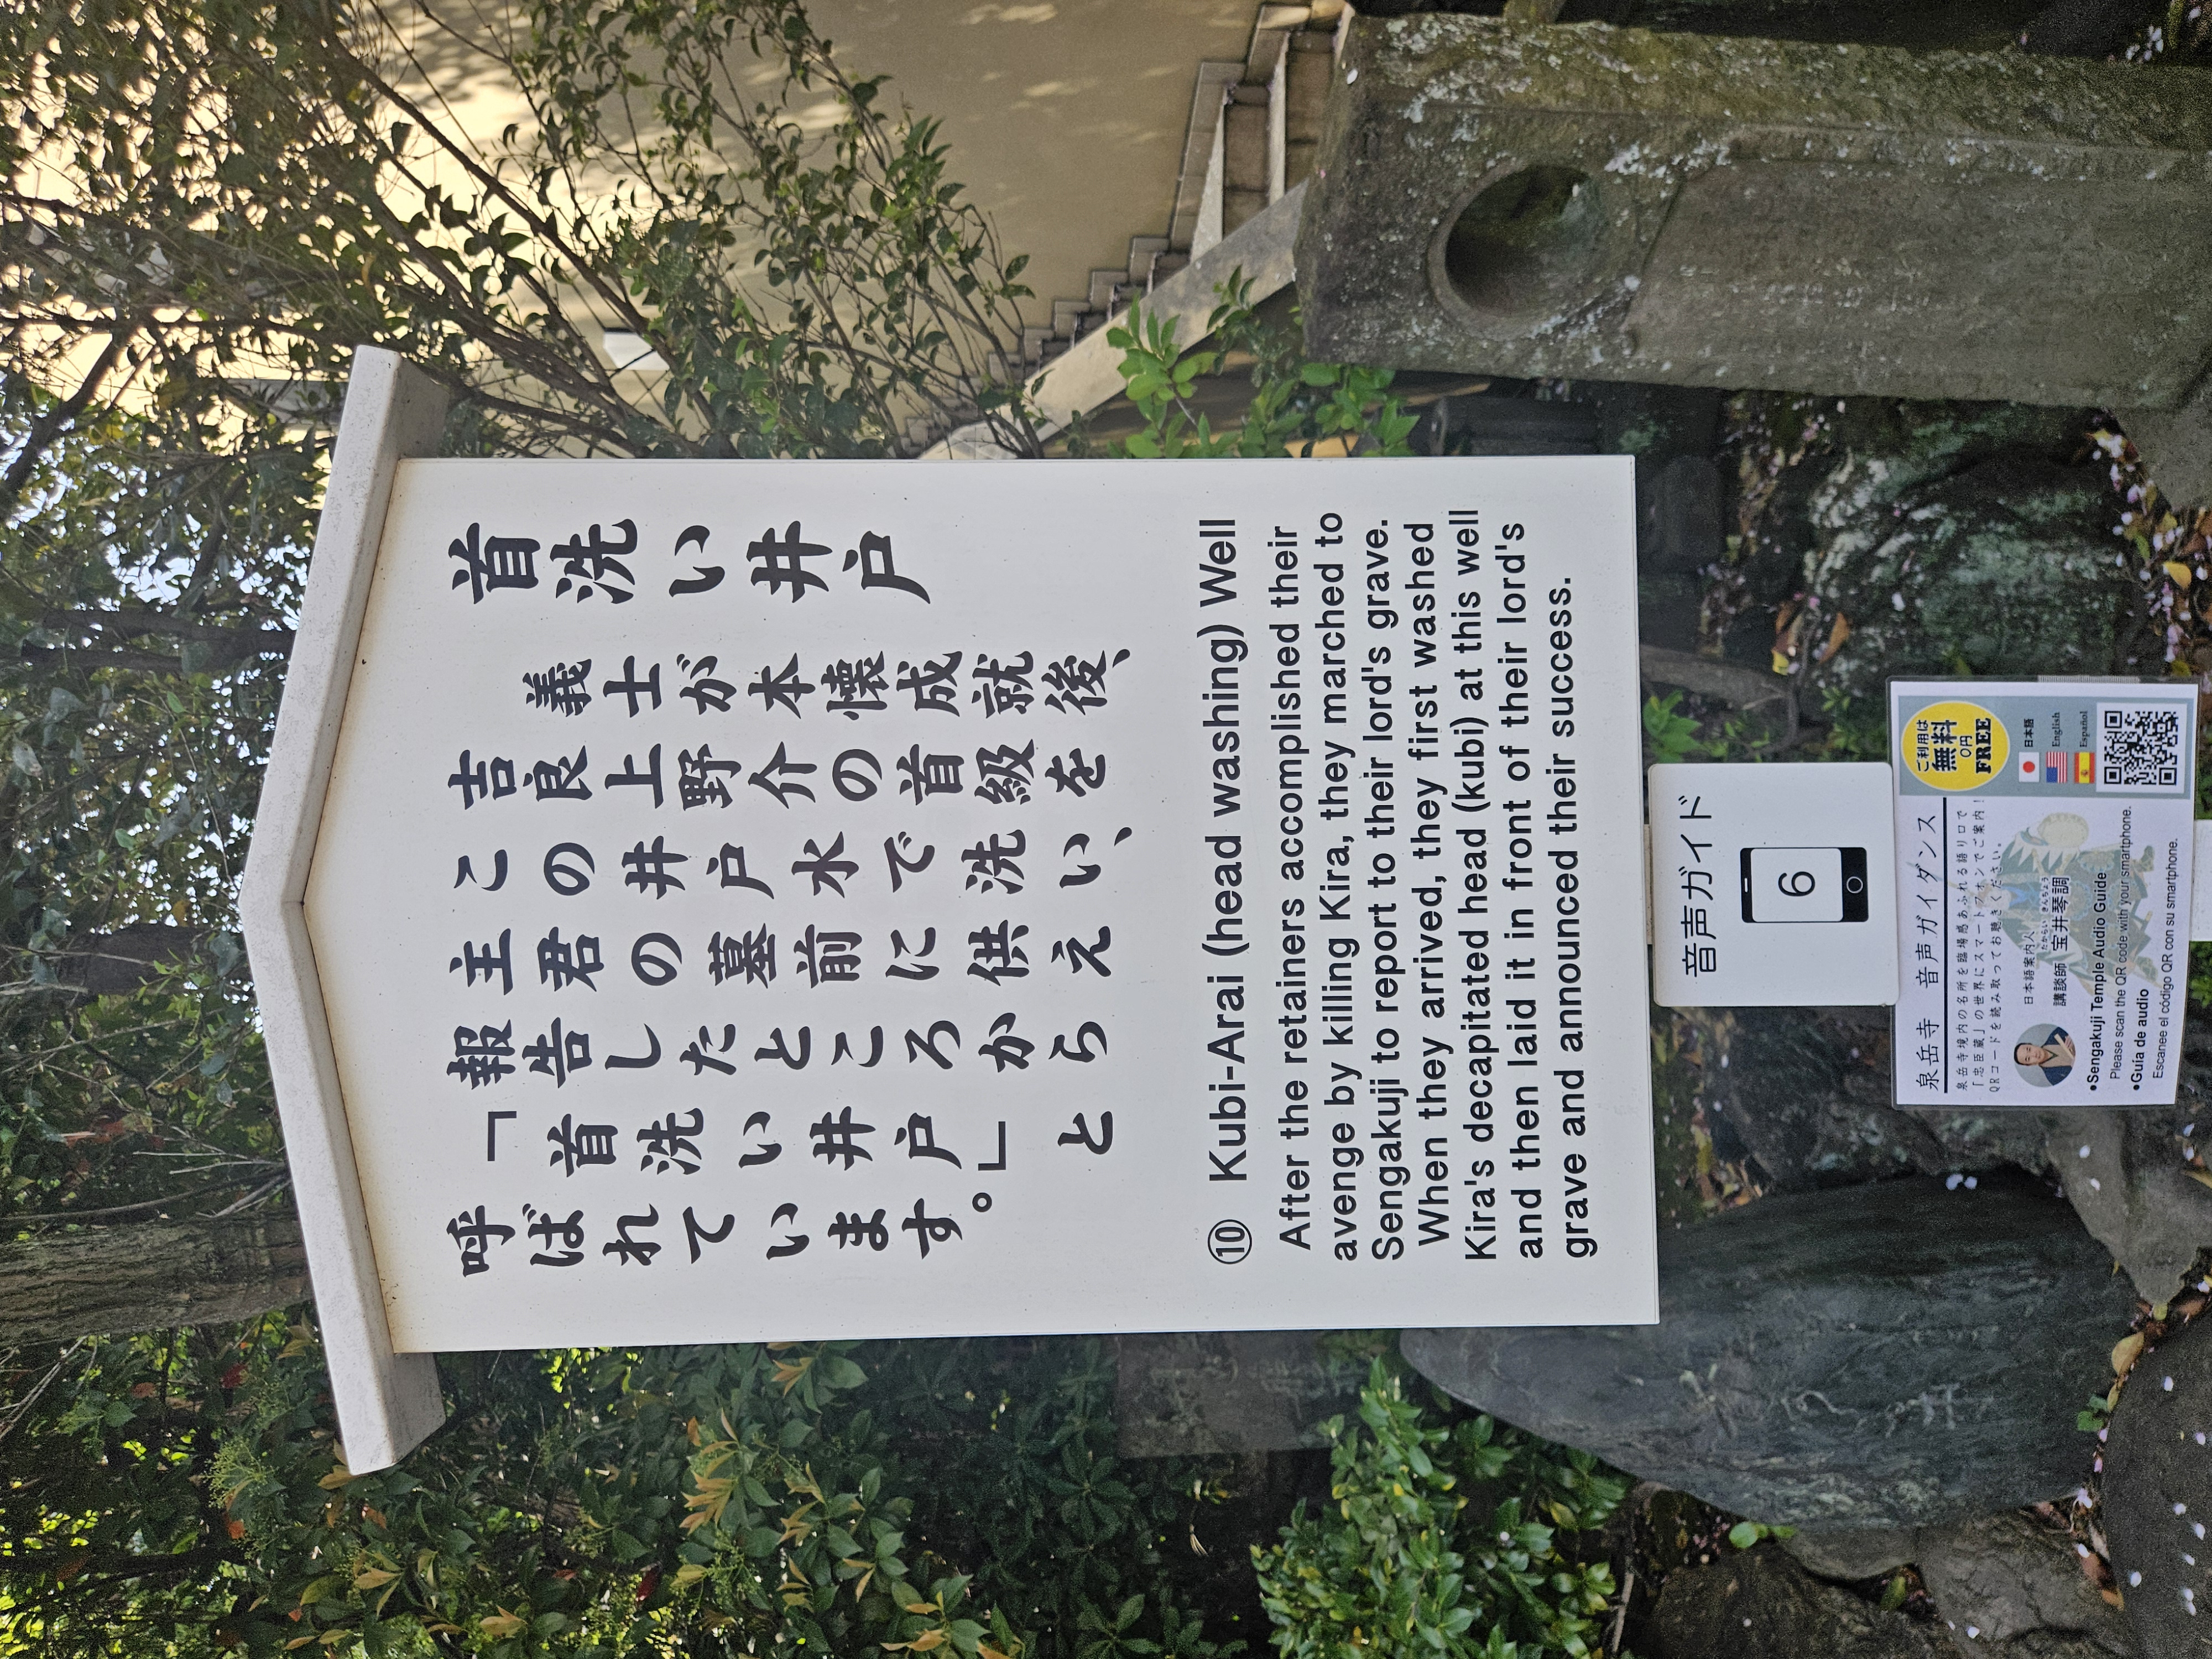 首洗い井戸
義士が本懐成就後、
吉良上野介の首級を
この井戸水で洗い、
主君の墓前に供え
報告したところから
「首洗い井戸」と
呼ばれています。
⑩ Kubi-Arai (head washing) Well
After the retainers accomplished their
avenge by killing Kira, they marched to
Sengakuji to report to their lord's grave.
When they arrived, they first washed
Kira's decapitated head (kubi) at this well
and then laid it in front of their lord's
grave and announced their success.
音声ガイド
6
泉岳寺 音声ガイダンス
泉岳寺境内の名所を臨場感あふれる語り口で
「忠臣蔵」の世界にスマートフォンでご案内!
QRコードを読み取ってお聴きください。
日本語案内人
講談師 宝井琴調
たからい きんちょう
•Sengakuji Temple Audio Guide
Please scan the QR code with your smartphone.
•Guía de audio
Escanee el código QR con su smartphone.
ご利用は
無料
0円
FREE
日本語
English
Español